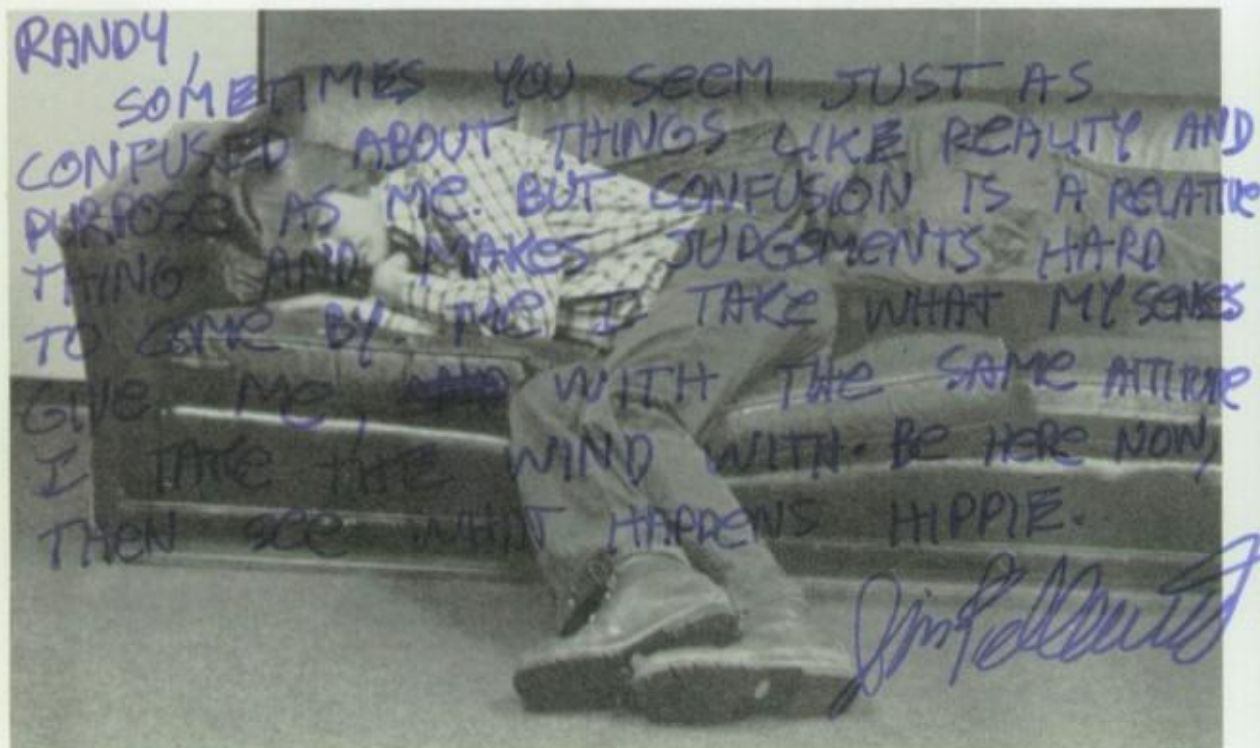 RANDY,
SOMETIMES YOU SEEM JUST AS
CONFUSED ABOUT THINGS LIKE REALITY AND
PURPOSE AS ME. BUT CONFUSION IS A RELATIVE
THING AND MAKES JUDGEMENTS HARD
TO COME BY ME I TAKE WHAT MY SENSES
GIVE ME, WITH THE SAME ATTITUDE
I TAKE THE WIND WITH. BE HERE NOW,
THEN SEE WHAT HAPPENS HIPPIE.
Jim